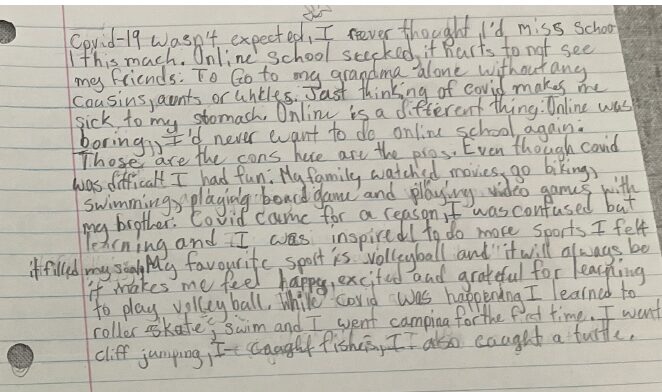 Covid-19 wasn't expected, I never thought I'd miss schoo
l this much. Online school sucked, it hurts to not see
my friends. To Go to my grandma alone without any
cousins, aunts or unkles. Just thinking of covid makes me
sick to my stomach. Online is a different thing. Online was
boring, I'd never want to do online school again.
Those are the cons here are the pros. Even though covid
was difficalt I had fun. My family watched movies, go biking,
swimming, playing board game and playing video games with
my brother. Covid came for a reason, I was confused but
learning and I was inspired to do more sports I felt
it filled my My favourite sport is volleyball and it will always be
it makes me feel happy, excited and grateful for learning
to play volleyball. While covid was happening I learned to
roller skate, swim and I went camping for the first time. I went
cliff jumping, I caught fishes, I also caught a turtle.